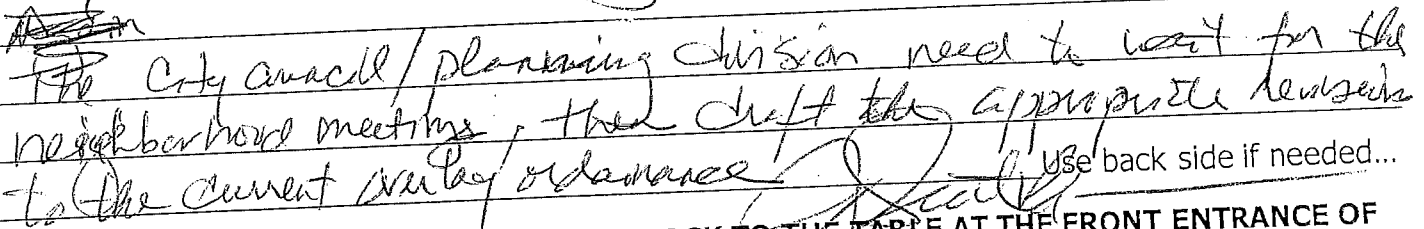 The City council/planning division need to wait for the
neighborhood meetings, then draft the appropriate revisions
to the current overlay ordanance
Use back side if needed...
TO THE TABLE AT THE FRONT ENTRANCE OF